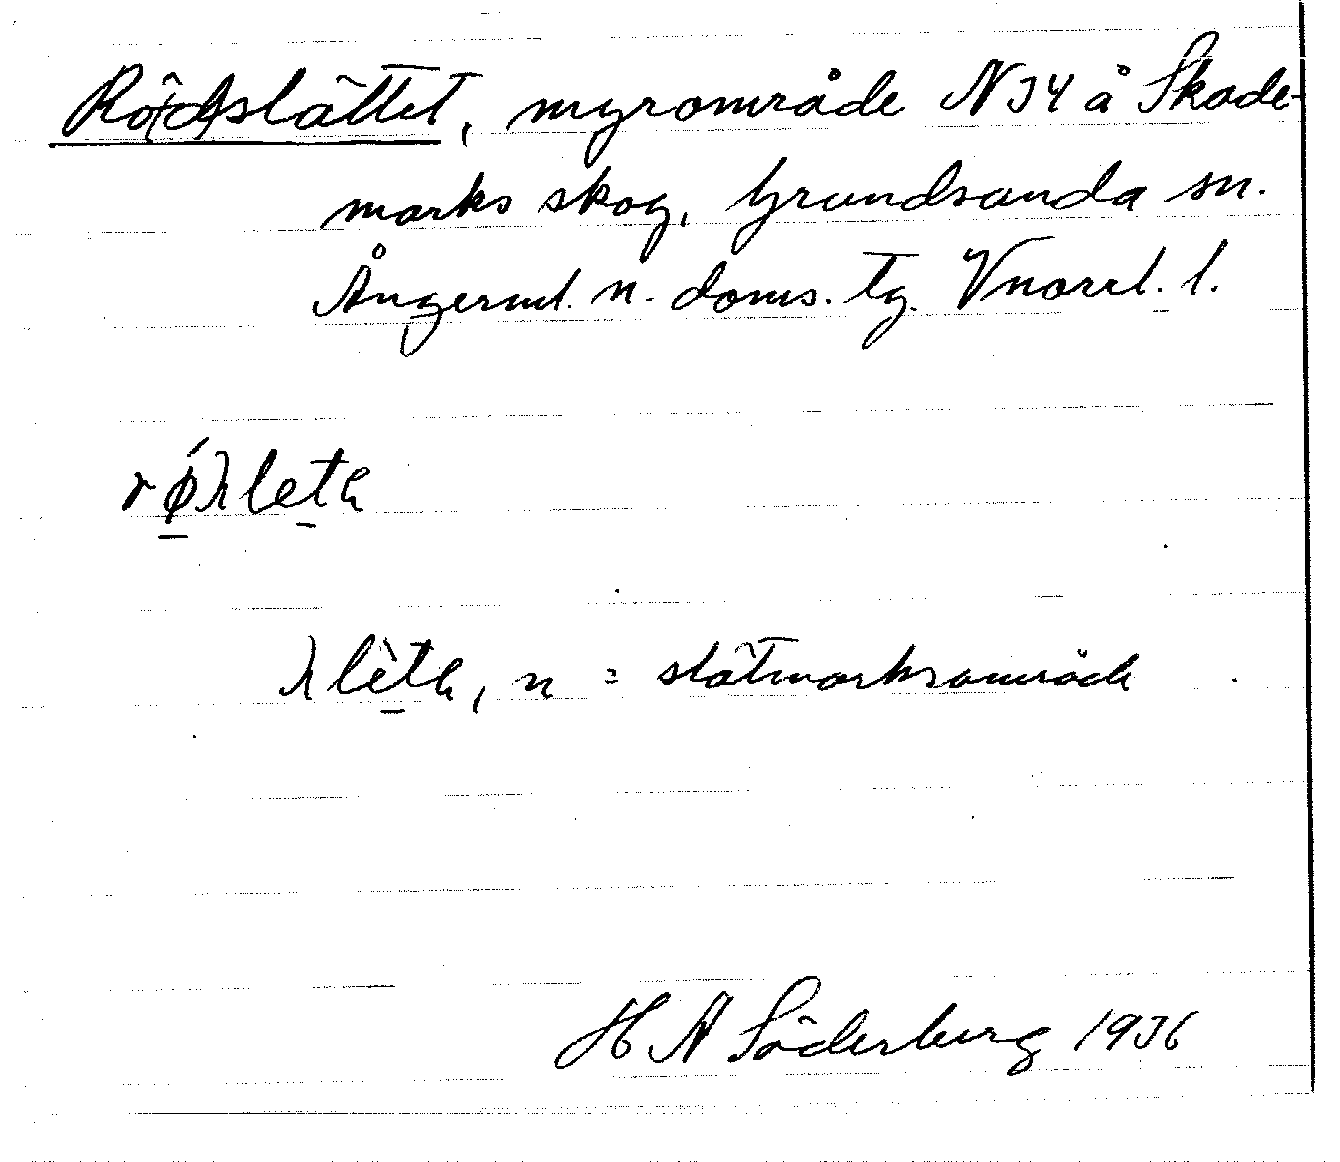 Rö(d)slåttet, myrområde N 34 å Skade-
marks skog, Grundsunda sn.
Ångerml. n. doms. tg. Vnorrl. l.
rǿλletα
λlètα, n = slåtmarksområde
H N Söderberg 1936